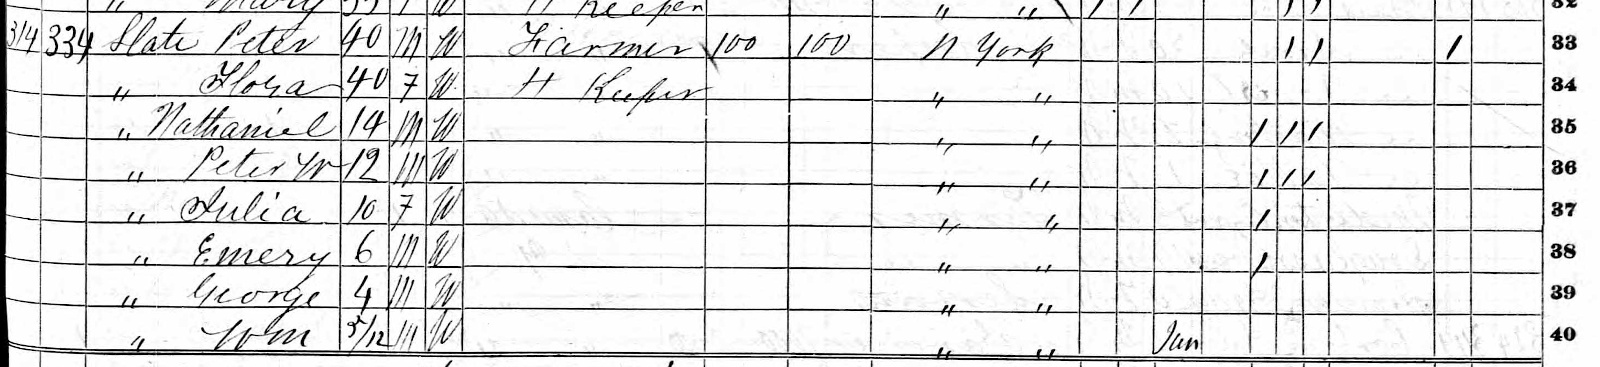 " Mary 35 F W H Keeper " " 1 1 1 1 32
314 334 Slate Peter 40 M W Farmer 100 100 N York 1 1 1 33
" Flora 40 F W H Keeper " " 34
" Nathaniel 14 M W " " 1 1 1 35
" Peter W 12 M W " " 1 1 1 36
" Julia 10 F W " " 1 37
" Emery 6 M W " " 1 38
" George 4 M W " " 39
" Wm 5/12 M W " " Jan 40